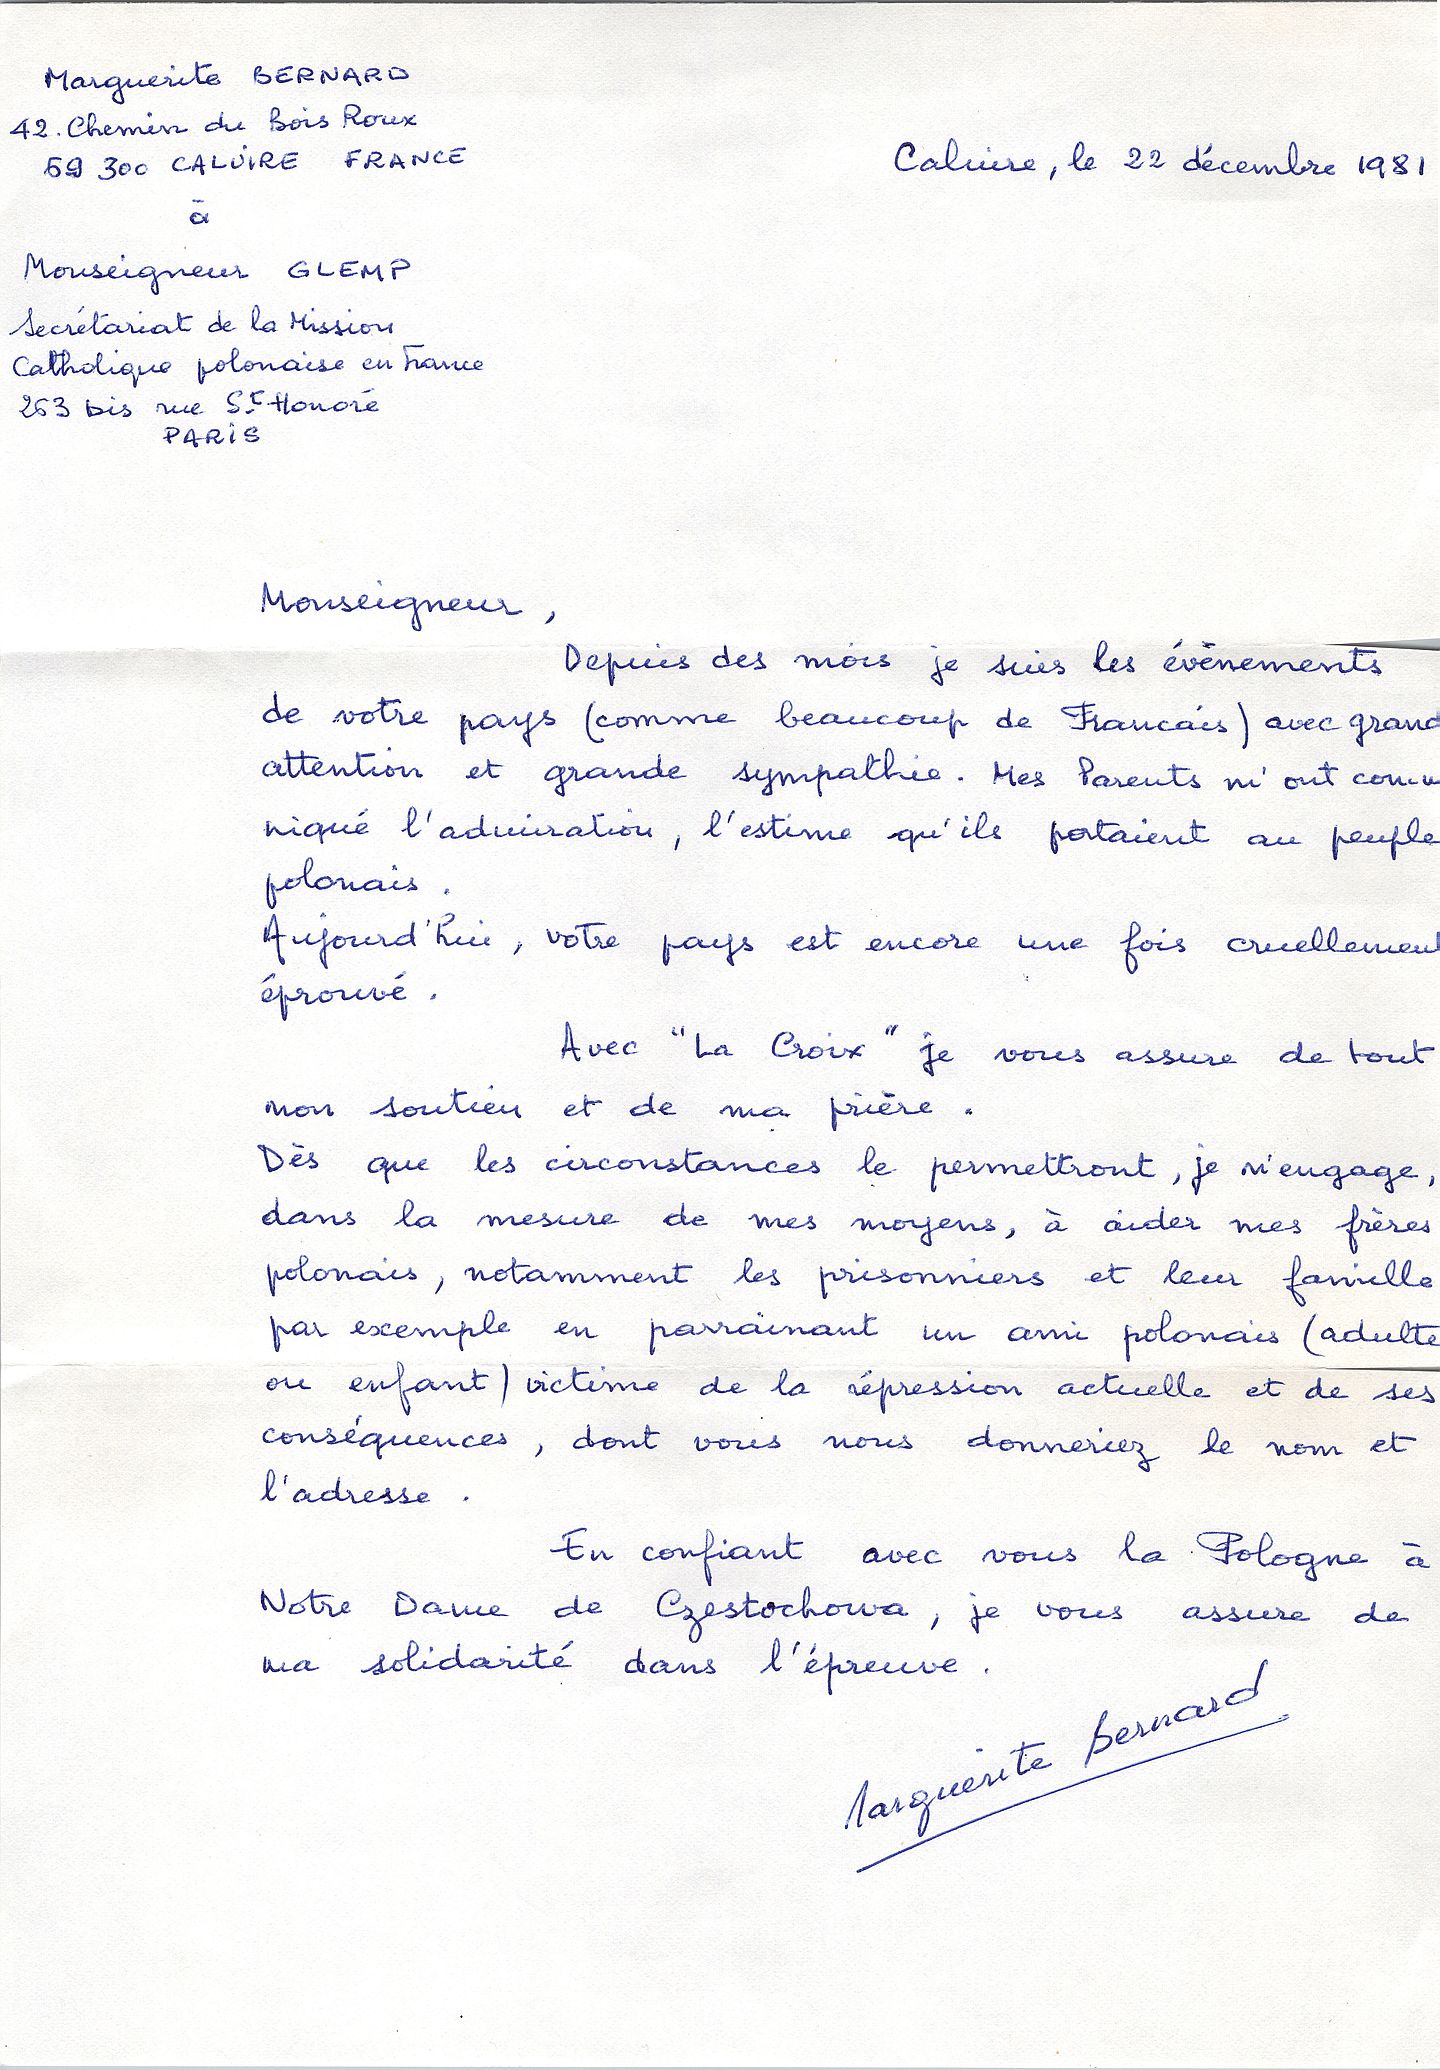 Marguerite BERNARD
42. Chemin du Bois Roux
69 300 CALUIRE FRANCE
Caluire, le 22 décembre 1981
à
Monseigneur GLEMP
Secrétariat de la Mission
Catholique polonaise en France
263 bis rue St Honoré
PARIS
Monseigneur,
Depuis des mois je suis les évènements
de votre pays (comme beaucoup de Francais) avec grand
attention et grande sympathie. Mes Parents m'ont commu
niqué l'admiration, l'estime qu'ils portaient au peuple
polonais.
Aujourd'hui, votre pays est encore une fois cruellement
éprouvé.
Avec "La Croix" je vous assure de tout
mon soutien et de ma prière.
Dès que les circonstances le permettront, je m'engage,
dans la mesure de mes moyens, à aider mes frères
polonais, notamment les prisonniers et leur famille
par exemple en parrainant un ami polonais (adulte
ou enfant) victime de la répression actuelle et de ses
conséquences, dont vous nous donneriez le nom et
l'adresse.
En confiant avec vous la Pologne à
Notre Dame de Czestochowa, je vous assure de
ma solidarité dans l'épreuve.
Marguerite Bernard